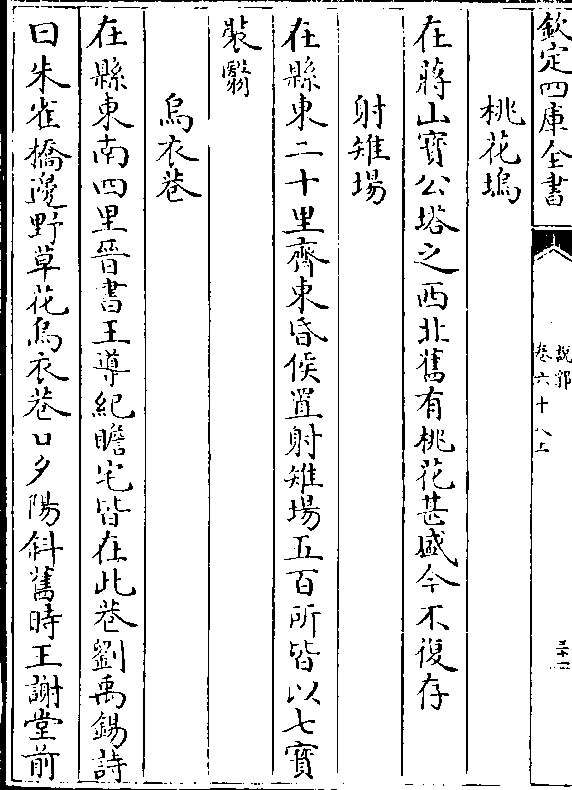 欽定四庫全書
說郛
卷六十八上
桃花塢
在蔣山寳公塔之西北舊有桃花甚盛今不復存
射雉場
在縣東二十里齊東昏侯置射雉場五百所皆以七寳
裝翳
烏衣巷
在縣東南四里晉書王導紀瞻宅皆在此巷劉禹錫詩
曰朱雀橋邊野草花烏衣巷口夕陽斜舊時王謝堂前